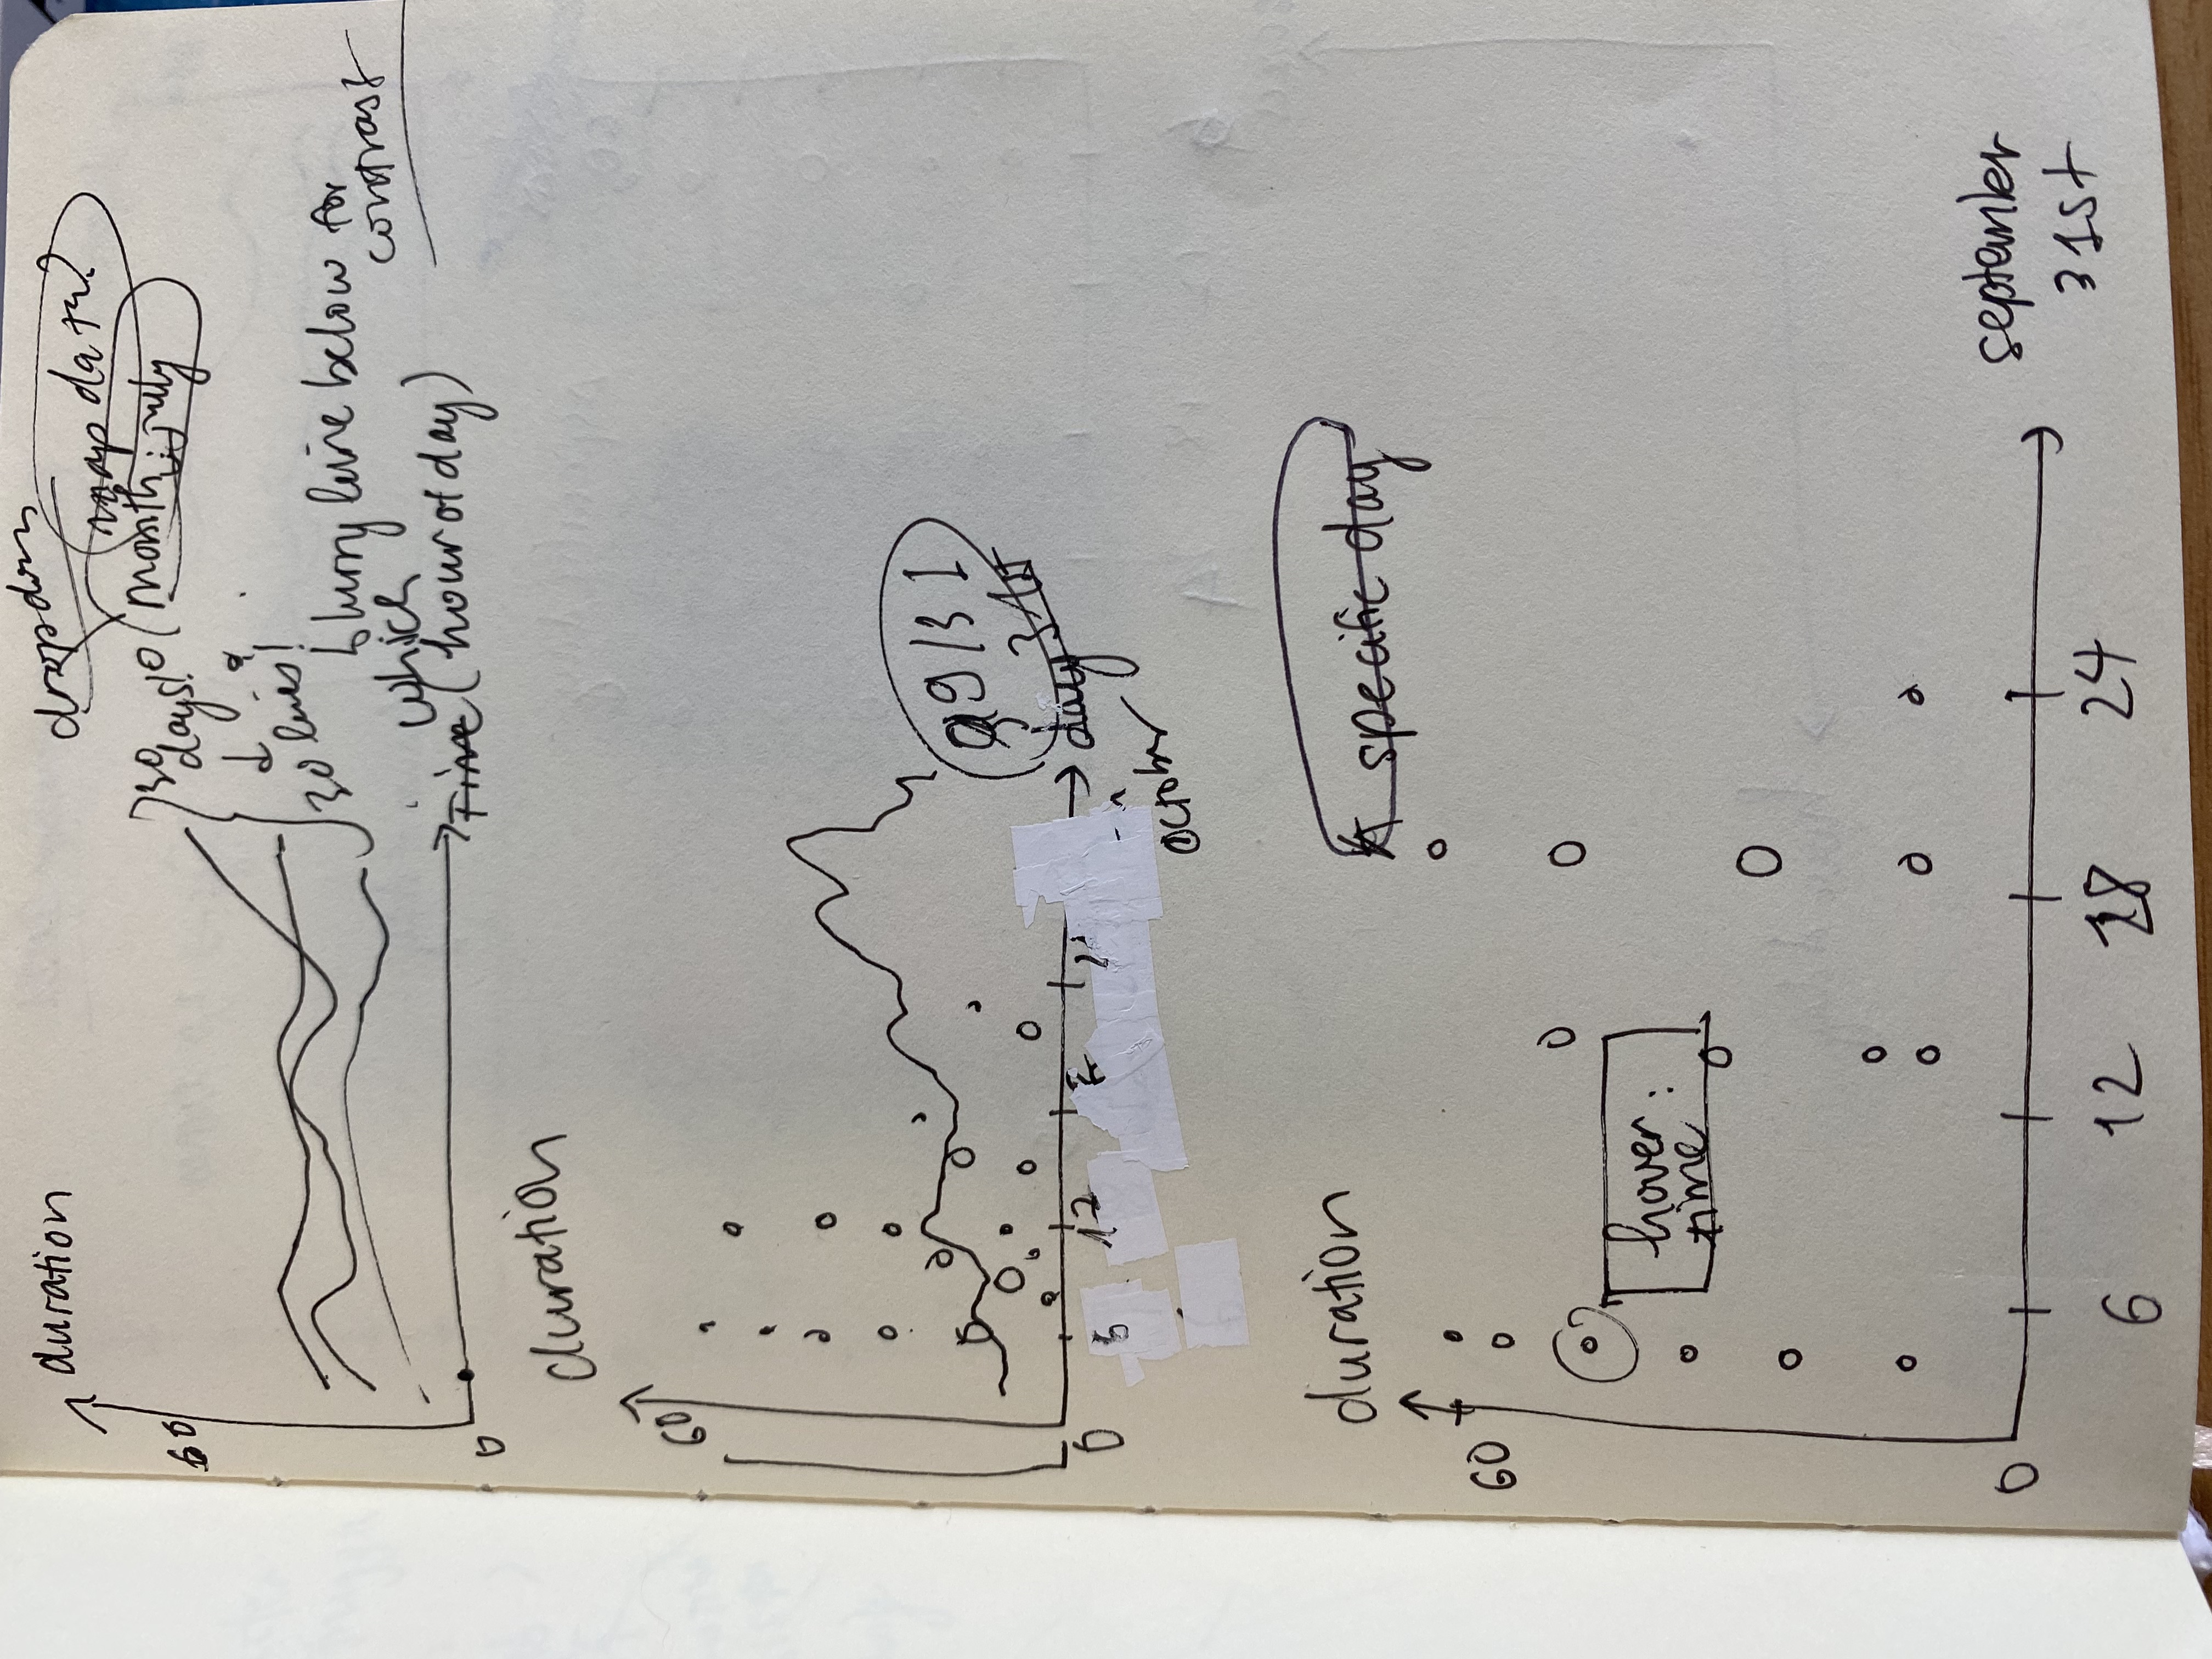 duration
dropdown
map data?
60
30 days!
month: july
↓
30 lines!
blurry line below for contrast
which
Time (hour of day)
0
duration
60
9/31
day 31st
0
6
12
october
duration
specific day
60
hover:
time
0
september
31st
6
12
18
24